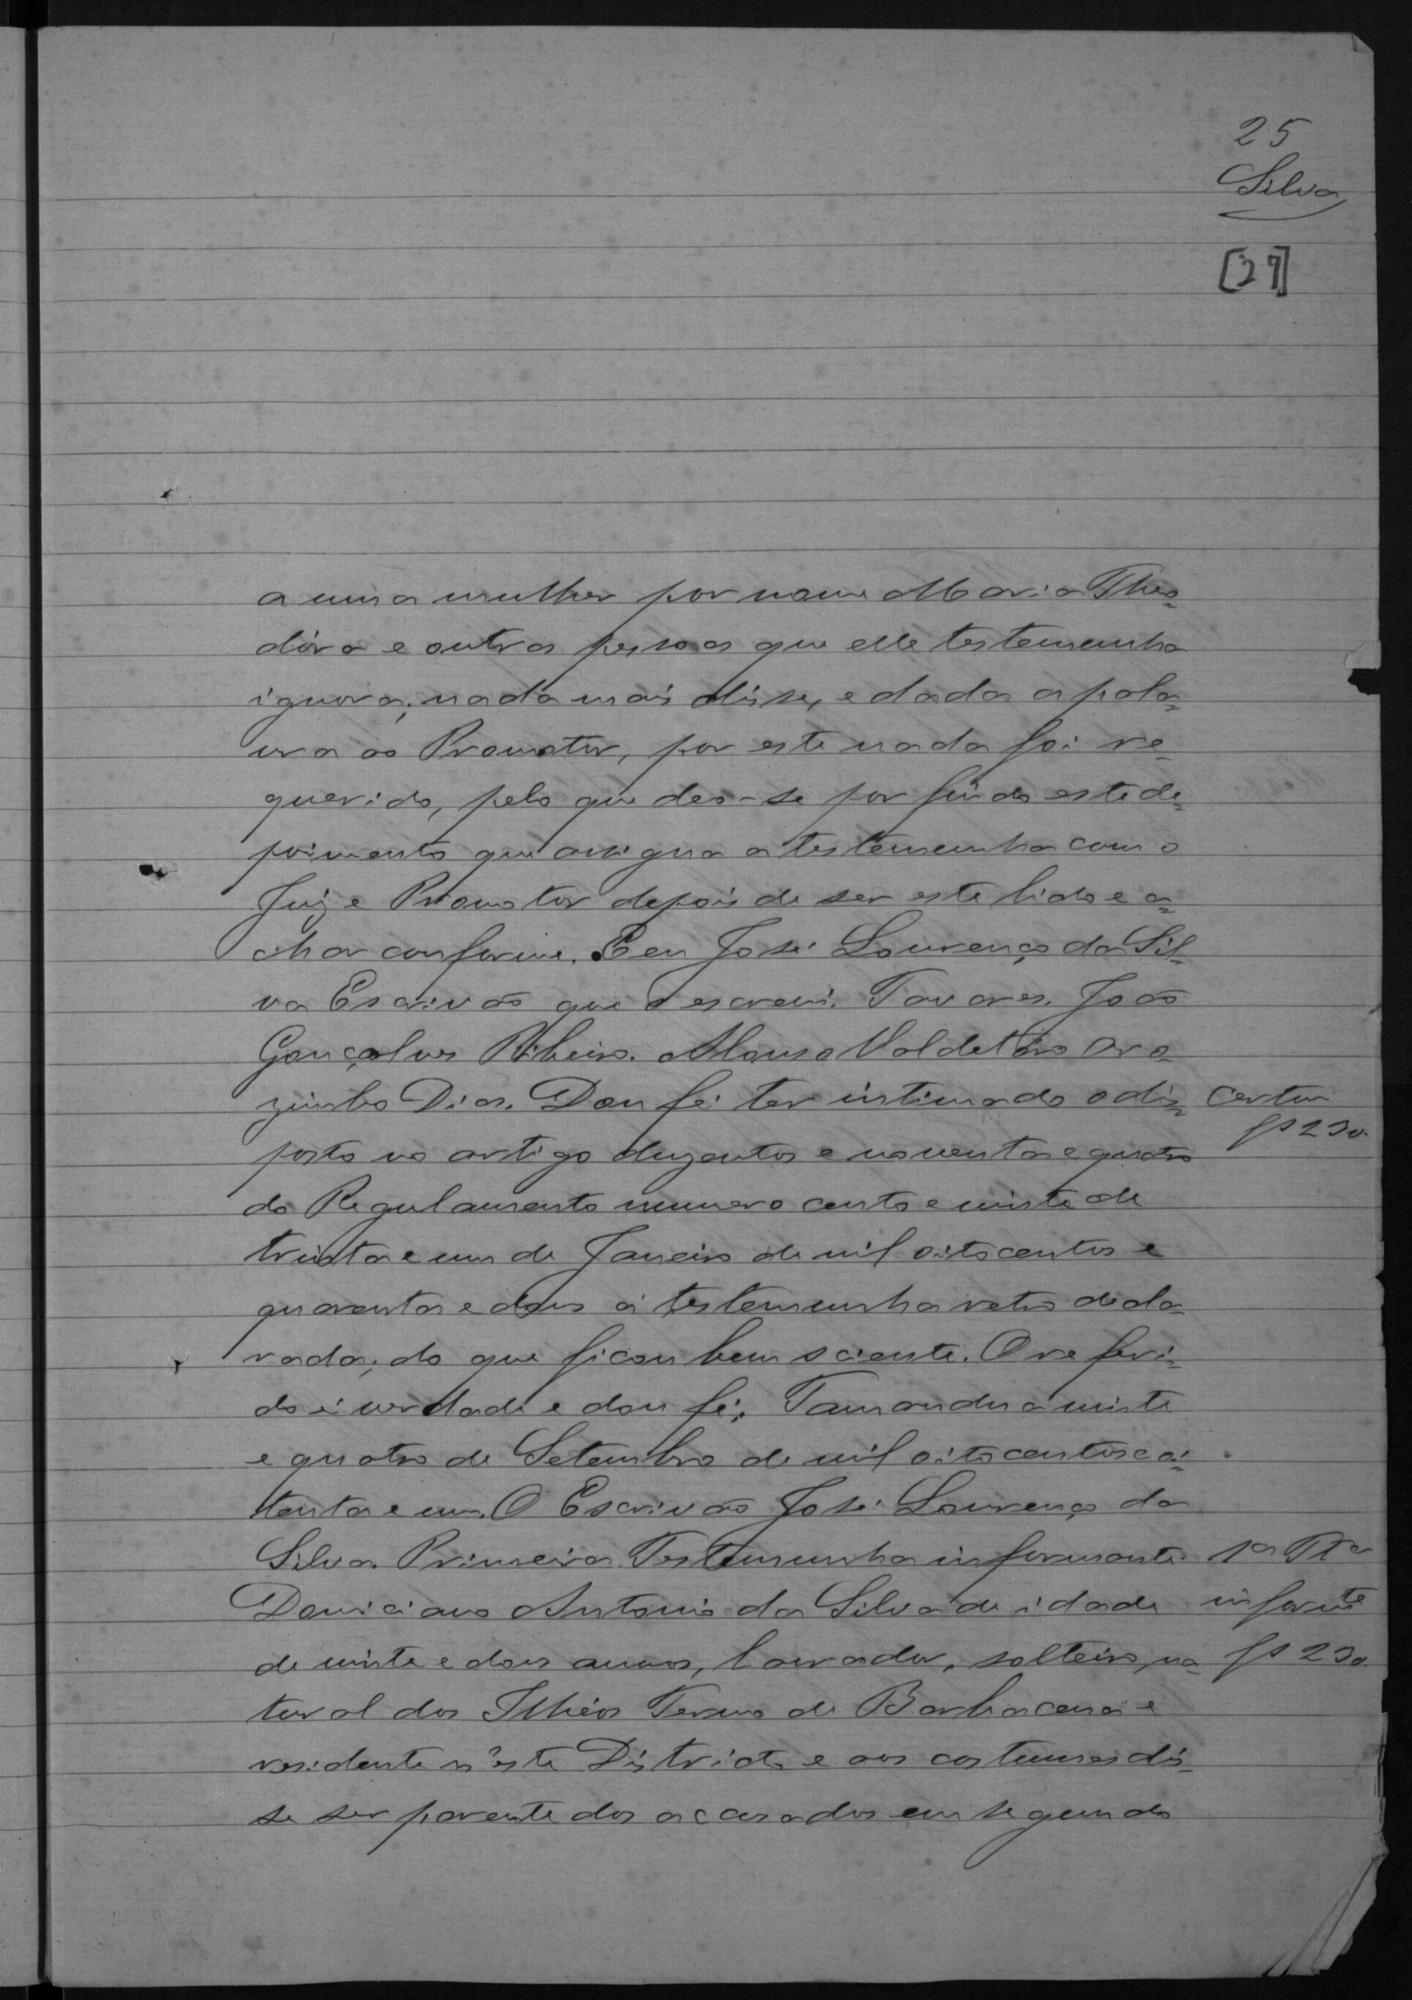 25
Silva
[27]
a uma mulher por nome Maria Theo=
dóra e outras pessoas que elle testemunha
ignora; nada mais disse, e dada a pala=
vra ao Promotor, por este nada foi re=
querido, pelo que deo-se por findo este de=
poimento que assigna a testemunha com o
Juiz e Promotor depois de ser este lido e a=
char conforme. E eu José Lourenço da Sil=
va Escrivão que o escrevi. Tavares. João
Gonçalves Ribeiro. Affonso Valdetaro Ara=
zimbo Dias. Dou fé ter intimado o dis=
posto no artigo duzentos e noventa e quatro
do Regulamento numero cento e vinte de
trinta e um de Janeiro de mil oitocentos e
quarenta e dous á testemunha retro decla=
rada; do que ficou bem sciente. O referi=
do é verdade e dou fé; Tamanduá vinte
e quatro de Setembro de mil oitocentos e oi=
tenta e um. O Escrivão José Lourenço da
Silva. Primeira Testemunha informante
Daviciano Antonio da Silva de idade
de vinte e dous annos, lavrador, solteiro, na=
tural dos Ilhéos Termo de Barbacena e
residente n'este Districto e aos costumes dis=
se ser parente dos accusados em segundo
Certam
fs 23v.
1ª Tª
informte
fs 23v.